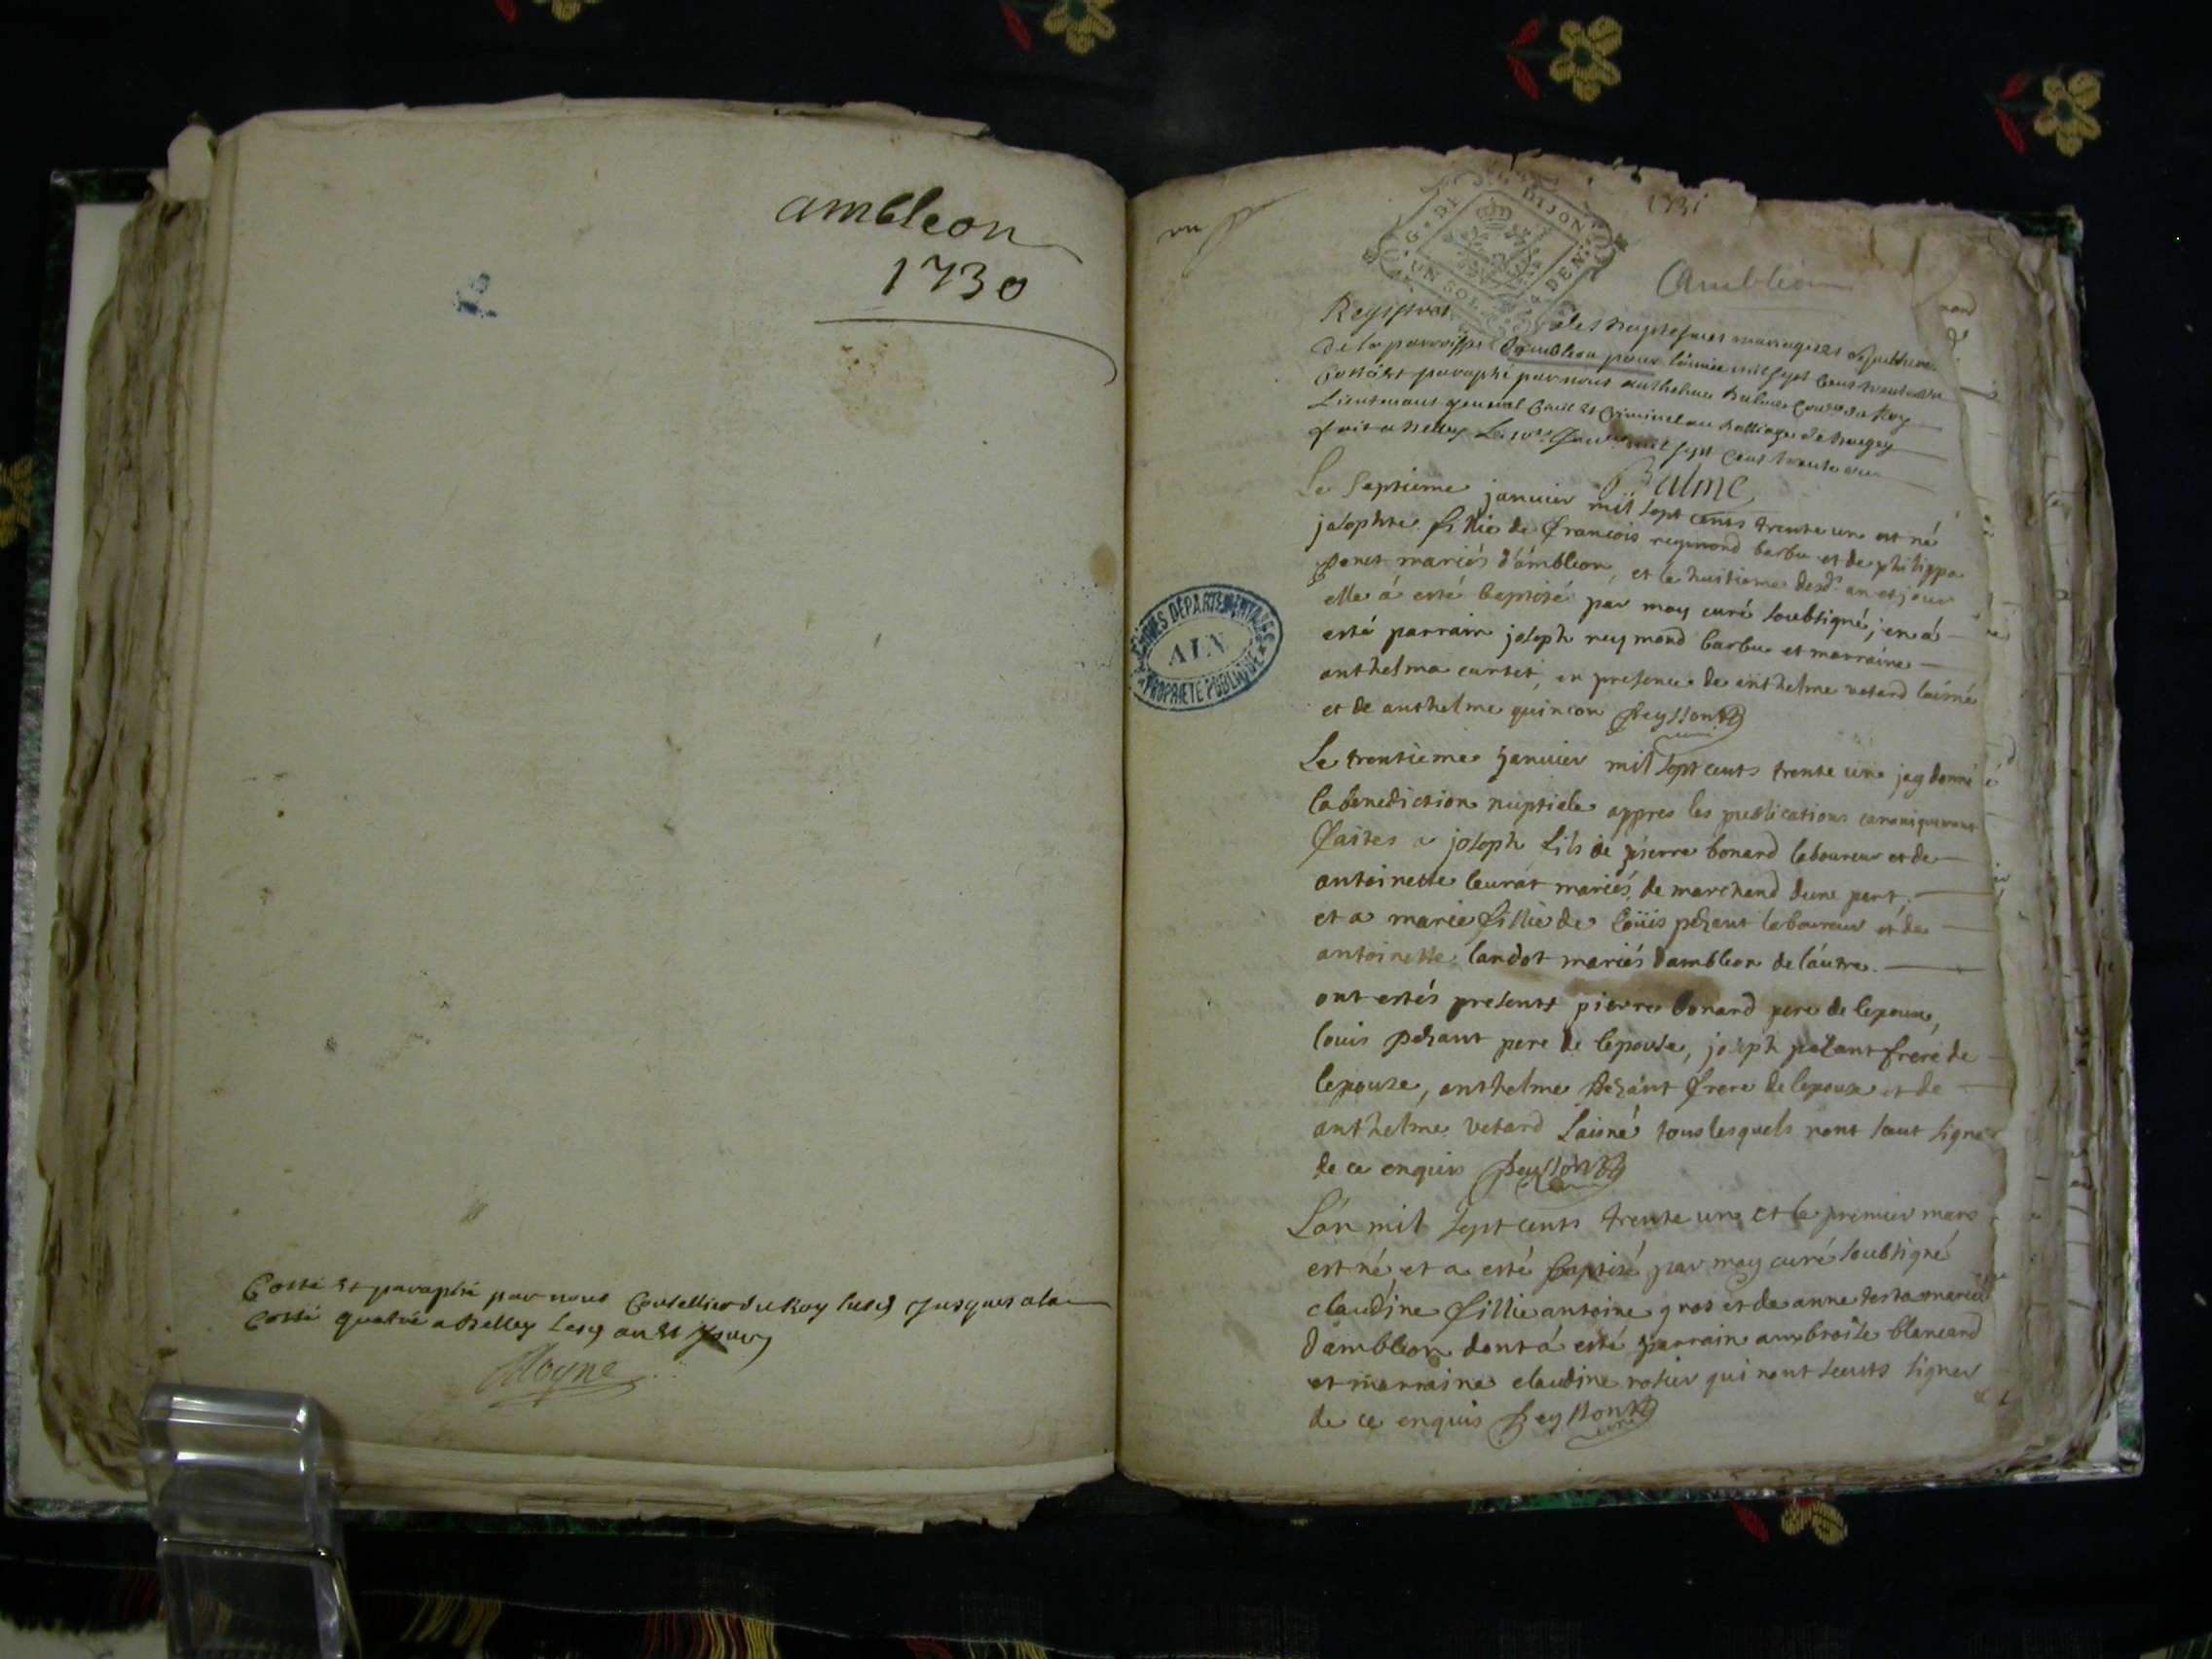 ambleon
1730
Cotté et paraphé par nous Conseiller du Roy jusques ala
Cotté quatre a Belley
Moyne
1731
G. DE DIJON
UN SOL 4 DEN.
Ambléon
Registre des baptesmes mariages et sepultures
de la parroisse Dambleon pour lannée mil sept cent trente un
Cotté et paraphé par nous anthelme Balme Con.er du Roy
Lieutenant general Civil et Criminel au Balliage de Bugey
fait a Belley Le mil sept cent trente un
Balme
ARCHIVES DÉPARTEMENTALES
AIN
PROPRIÉTÉ PUBLIQUE
Le septieme janvier mil sept cents trente un est né
josephte fillie de francois reymond barbu et de philippa
ponet mariés d'ambleon, et le huitieme desd. an et jour
elle á esté baptisé par moy curé soubsigné; en á
esté parrain joseph reymond barbu et marraine
anthelma curtet, en presence de enthelme vetard lainé
et de anthelme quincon Peysson
Le trentieme janvier mil sept cents trente un jay donné
la benediction nuptiale appres les publications canoniquement
faites a joseph fils de pierre bonard laboureur et de
antoinette leurat mariés, de marchand dune part,
et a marie fillie de loüis pezant laboureur et de
antoinette landot mariés dambleon de láutre.
ont estés presents pierre bonard pere de lepoux,
louis pezant pere de lepouse, joseph pezant frere de
lepouze, anthelme pezant frere de lepouze et de
anthelme vetard lainé tous lesquels nont sceut signer
de ce enquis Peysson
L'an mil sept cents trente un et le premier mars
est né et a esté baptisé par moy curé soubsigné
claudine fillie antoine gros et de anne testa mariés
d'ambleon dont á esté parrain ambroise blancard
et marraine claudine rosier qui nont sceuts signer
de ce enquis Peysson